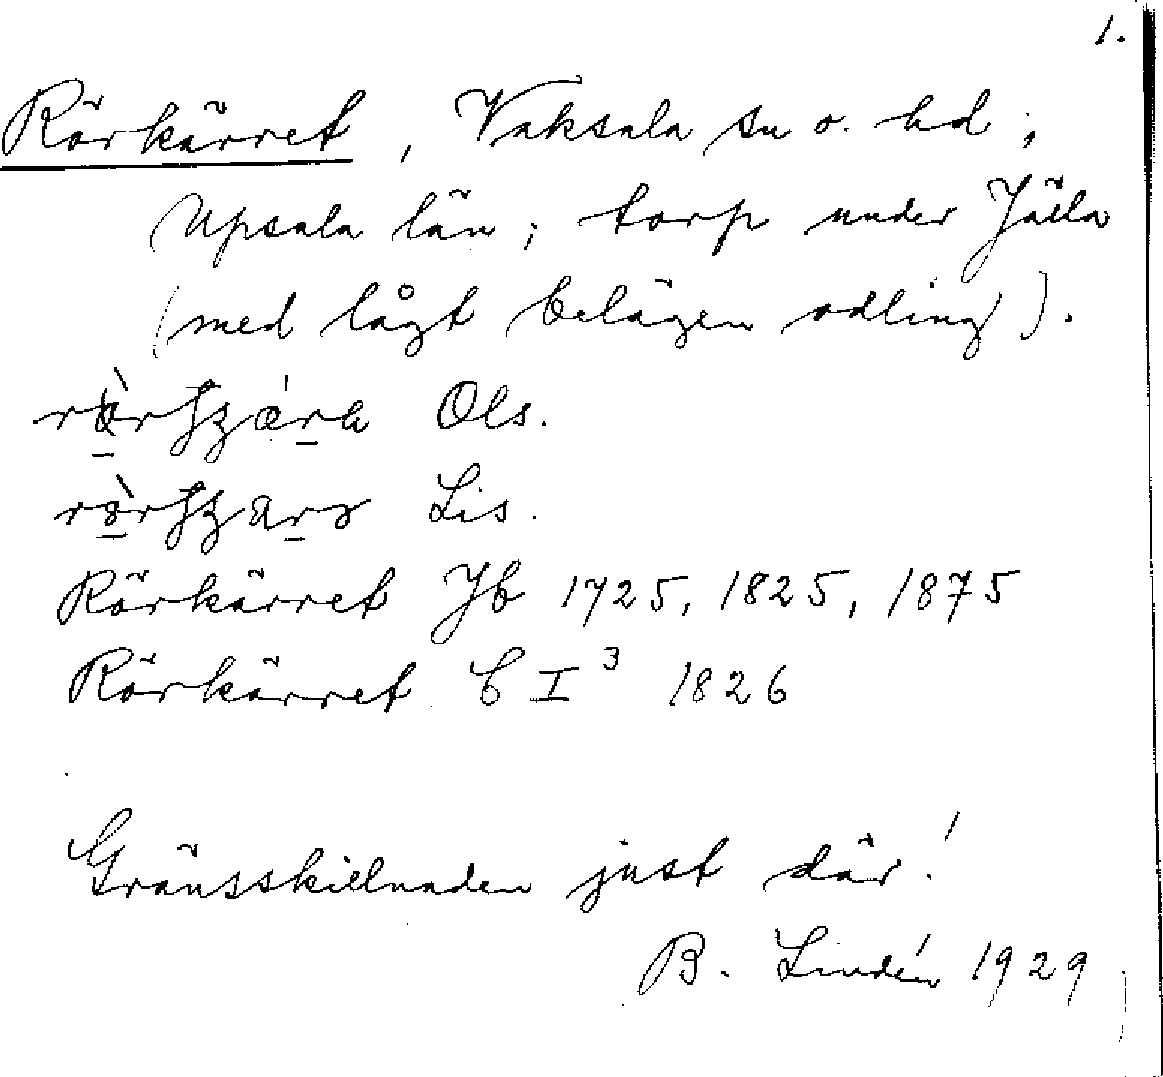 1.
Rörkärret, Vaksala sn o. hd;
Upsala län; torp under Jälla
(med lågt belägen odling).
Ols.
Lis.
Rörkärret Jb 1725, 1825, 1875
Rörkärret C I³ 1826
Gränsskillnaden just där!
B. Lindén 1929